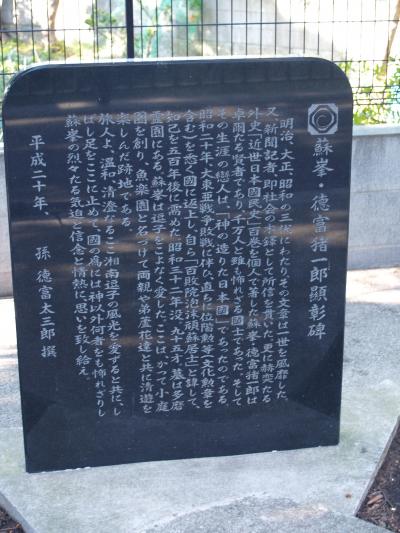 蘇峯・徳富猪一郎顕彰碑
明治、大正、昭和の三代にわたり、その文章は一世を風靡した。
又、新聞記者、即、社会の木鐸として所信を貫いた。更に赫奕たる
外史「近世日本国民史」百巻を個人で著した蘇峯・徳富猪一郎は
卓爾たる賢者であり、千万人と雖も怖れざる國士であった。そして
その生涯の戀人は、「神の造りた日本國」であったのである。
昭和二十年、大東亜戦争敗戦に伴ひ、直ちに位階勲等（文化勲章を
含む）を悉く國に返上し、自ら「百敗院泡沫頑蘇居士」と諱して、
知己を五百年後に需めた。昭和三十二年没、九十五才。墓は多磨
霊園にある。蘇峯は逗子をこよなく愛した。ここは、かつて小庭
園を創り、魚楽園と名づけて両親や弟蘆花達と共に清遊を
楽しんだ跡地である。
旅人よ、温和、清澄なるここ湘南逗子の風光を愛すると共に、し
ばし足をここに止めて、國の為には神以外何者をも怖れざりし
蘇峯の烈々たる気迫と信念と情熱に思いを致し給え。
平成二十年、　孫　徳富太三郎　撰